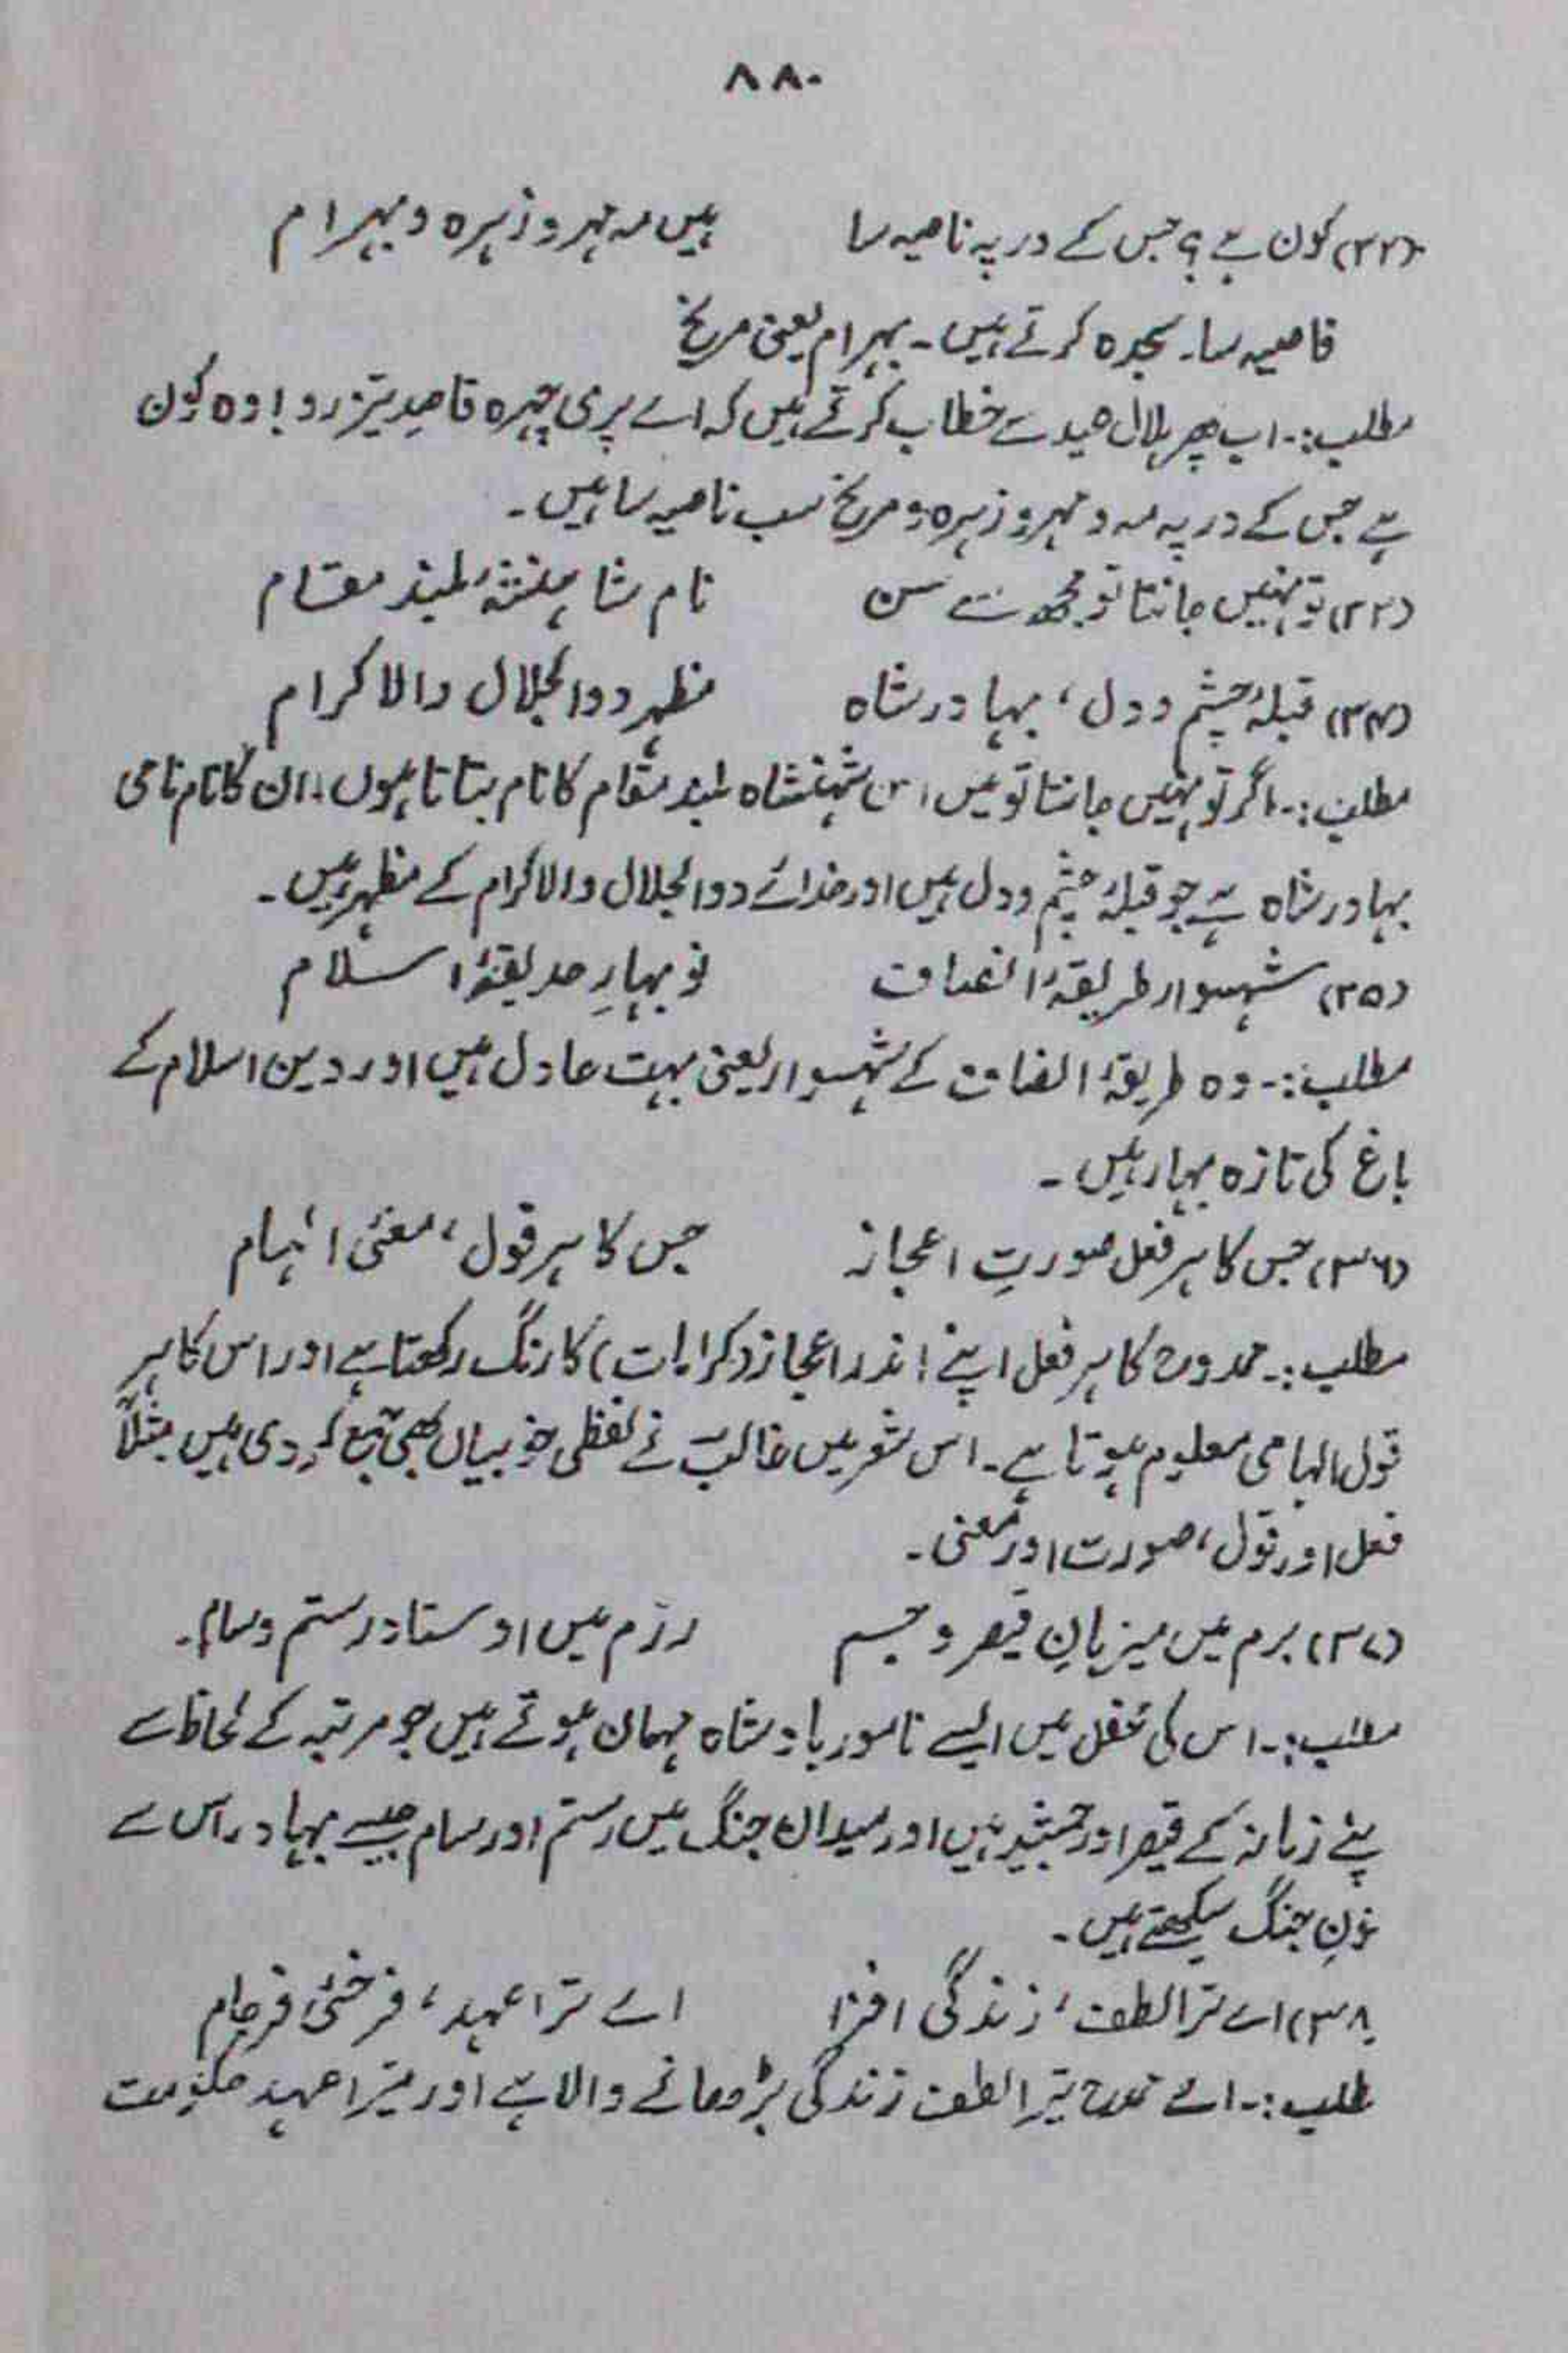 ۸۸۰
(۳۲) کون ہے؟ جس کے در پہ ناصیہ سا ہیں مہ مہر و زہرہ و بہرام
ناصیہ سا۔ سجدہ کرتے ہیں۔ بہرام یعنی مریخ
مطلب:۔ اب پھر ہلال عید سے خطاب کرتے ہیں کہ اے پری چہرہ قاصدِ تیز رو! وہ کون
ہے جس کے در پہ مہ و مہر و زہرہ و مریخ سب ناصیہ سا ہیں۔
(۳۳) تو نہیں جانتا تو مجھ سے سن نام شاہنشہِ بلند مقام
(۳۴) قبلۂ چشم و دل، بہادر شاہ مظہر ذوالجلال والاکرام
مطلب:۔ اگر تو نہیں جانتا تو میں اس شہنشاہ بلند مقام کا نام بتاتا ہوں۔ ان کا نام نامی
بہادر شاہ ہے جو قبلۂ چشم و دل ہیں اور خدائے ذوالجلال والاکرام کے مظہر ہیں۔
(۳۵) شہسوار طریقۂ انصاف نو بہارِ حدیقۂ اسلام
مطلب:۔ وہ طریقۂ انصاف کے شہسوار یعنی بہت عادل ہیں اور دین اسلام کے
باغ کی تازہ بہار ہیں۔
(۳۶) جس کا ہر فعل صورتِ اعجاز جس کا ہر قول، معنیٔ الہام
مطلب:۔ ممدوح کا ہر فعل اپنے اندر اعجاز (کرامات) کا رنگ رکھتا ہے اور اس کا ہر
قول الہامی معلوم ہوتا ہے۔ اس شعر میں غالبؔ نے لفظی خوبیاں بھی جمع کر دی ہیں مثلاً
فعل اور قول، صورت اور معنی۔
(۳۷) بزم میں میزبانِ قیصر و جسم رزم میں اوستادِ رستم و سام۔
مطلب:۔ اس کی محفل میں ایسے نامور بادشاہ مہمان ہوتے ہیں جو مرتبہ کے لحاظ سے
پنے زمانہ کے قیصر اور جمشید ہیں اور میدان جنگ میں رستم اور سام جیسے بہادر اس سے
جنگ سیکھتے ہیں۔
۳۸) اے ترا لطف، زندگی افزا اے ترا عہد، فرخیٔ فرجام
طلب:۔ اے ممدوح تیرا لطف زندگی بڑھانے والا ہے اور تیرا عہد حکومت